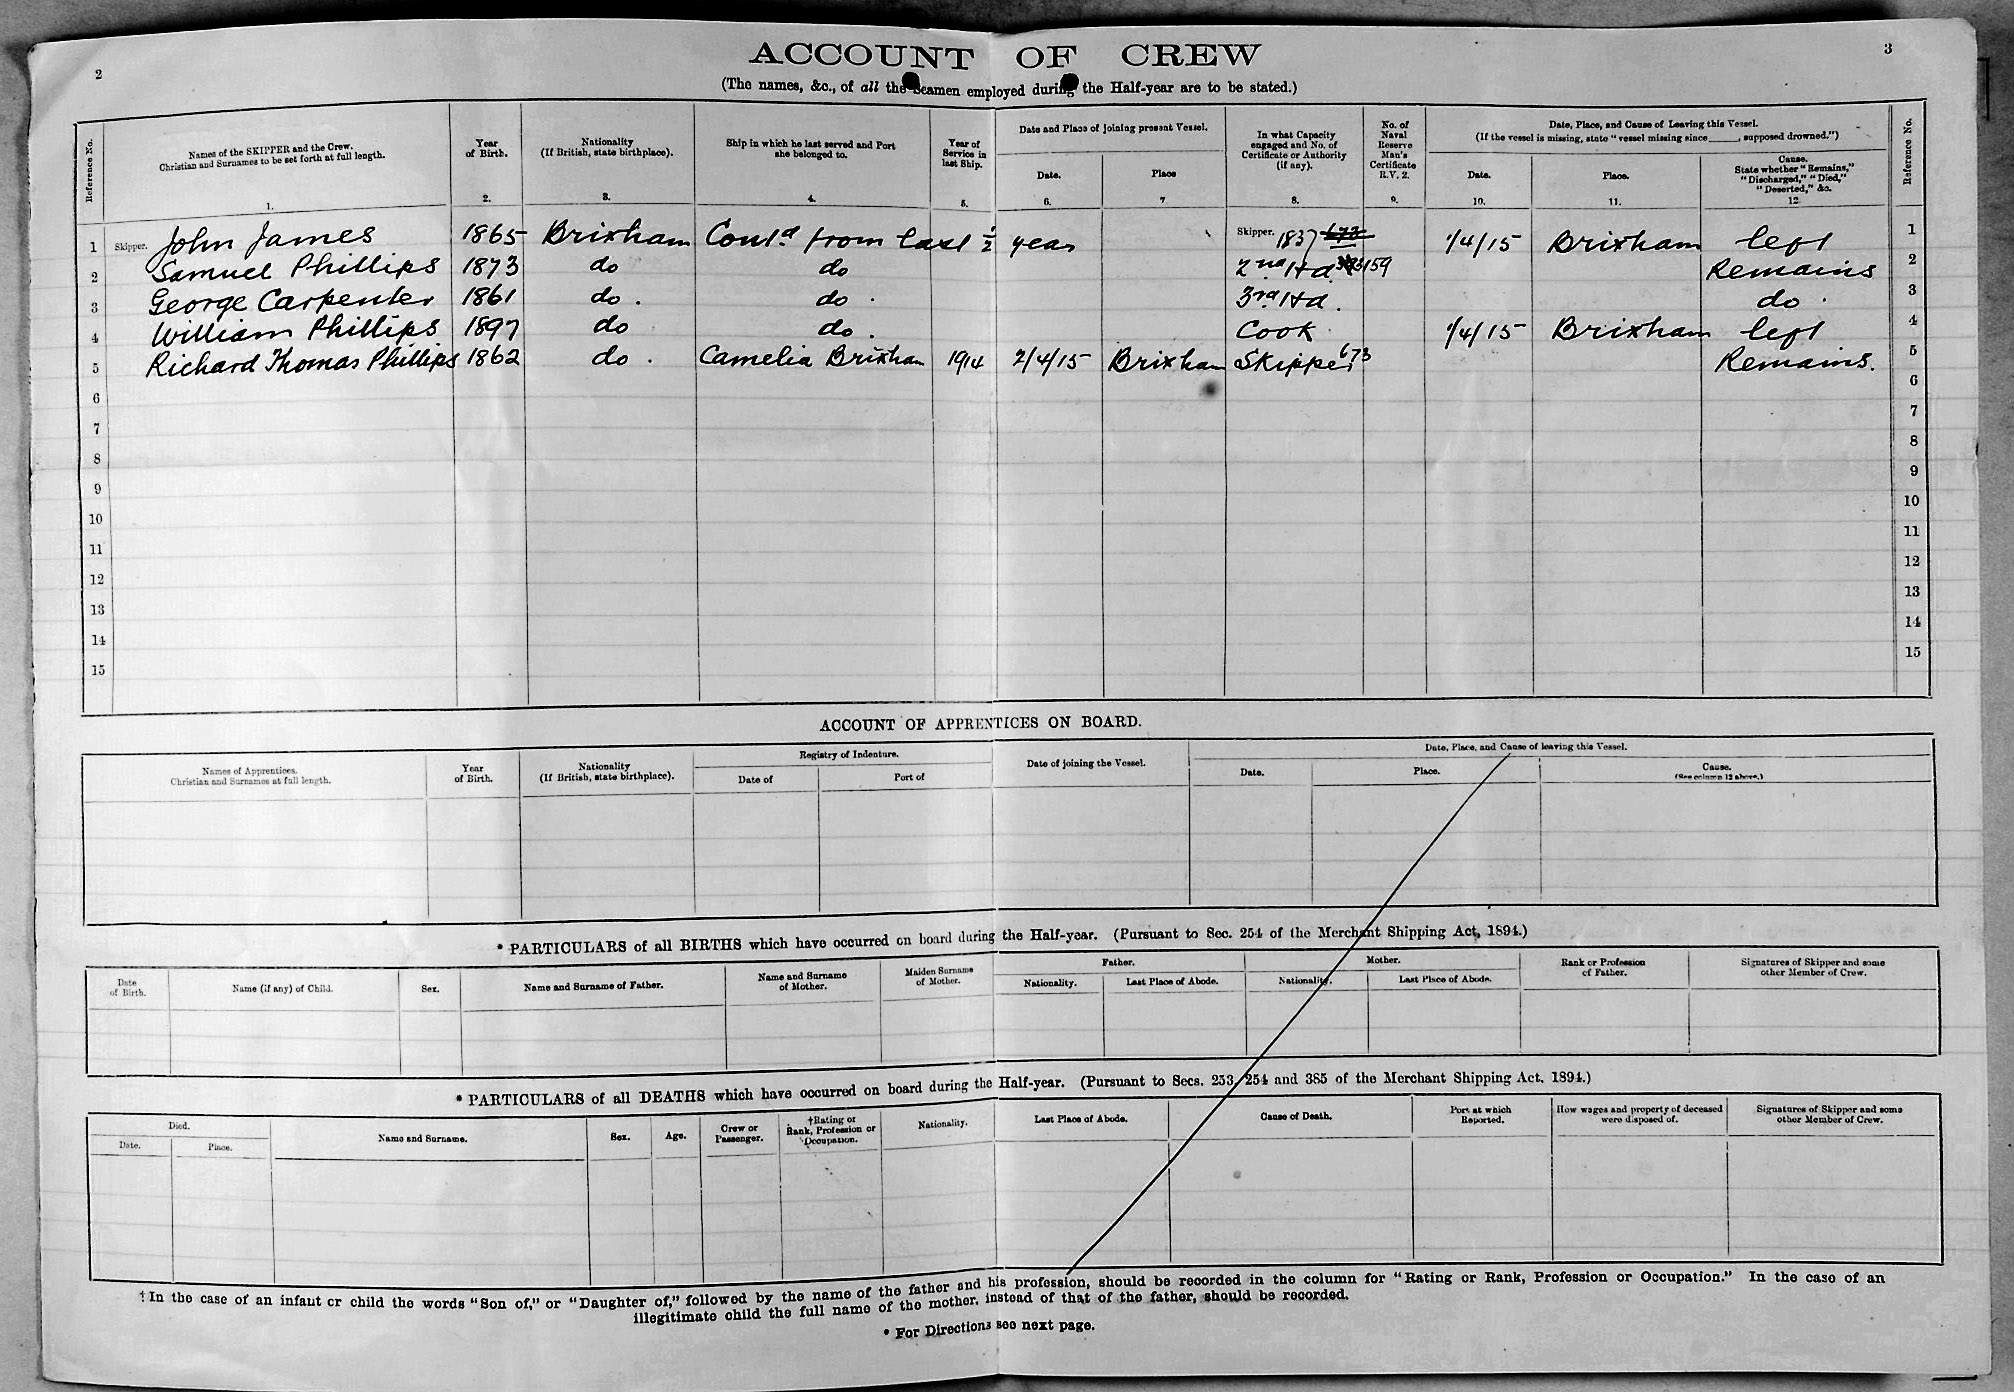 2
ACCOUNT OF CREW
3
(The names, &c., of all the Seamen employed during the Half-year are to be stated.)
Reference No.
Names of the SKIPPER and the Crew.
Christian and Surnames to be set forth at full length.
1.
Year
of Birth.
2.
Nationality
(If British, state birthplace).
3.
Ship in which he last served and Port
she belonged to.
4.
Year of
Service in
last Ship.
5.
Date and Place of joining present Vessel.
Date.
6.
Place
7
In what Capacity
engaged and No. of
Certificate or Authority
(if any).
8.
No. of
Naval
Reserve
Man's
Certificate
R.V. 2.
9.
Date, Place, and Cause of Leaving this Vessel.
(If the vessel is missing, state "vessel missing since_____, supposed drowned.")
Date.
10.
Place.
11.
Cause.
State whether "Remains,"
"Discharged," "Died,"
"Deserted," &c.
12
Reference No.
1 Skipper. John James 1865 Brixham Cont.d from last ½ year Skipper. 1837 673 1/4/15 Brixham left 1
2 Samuel Phillips 1873 do do 2nd Hd 159 Remains 2
3 George Carpenter 1861 do. do. 3rd Hd. do. 3
4 William Phillips 1897 do do. Cook 1/4/15 Brixham left 4
5 Richard Thomas Phillips 1862 do. Camelia Brixham 1914 2/4/15 Brixham Skipper 673 Remains. 5
6 6
7 7
8 8
9 9
10 10
11 11
12 12
13 13
14 14
15 15
ACCOUNT OF APPRENTICES ON BOARD.
Names of Apprentices.
Christian and Surnames at full length.
Year
of Birth.
Nationality
(If British, state birthplace).
Registry of Indenture.
Date of
Port of
Date of joining the Vessel.
Date, Place, and Cause of leaving this Vessel.
Date.
Place.
Cause.
(See column 12 above.)
* PARTICULARS of all BIRTHS which have occurred on board during the Half-year. (Pursuant to Sec. 254 of the Merchant Shipping Act, 1894.)
Date
of Birth.
Name (if any) of Child.
Sex.
Name and Surname of Father.
Name and Surname
of Mother.
Maiden Surname
of Mother.
Father.
Nationality.
Last Place of Abode.
Mother.
Nationality.
Last Place of Abode.
Rank or Profession
of Father.
Signatures of Skipper and some
other Member of Crew.
* PARTICULARS of all DEATHS which have occurred on board during the Half-year. (Pursuant to Secs. 253, 254 and 385 of the Merchant Shipping Act, 1894.)
Died.
Date.
Place.
Name and Surname.
Sex.
Age.
Crew or
Passenger.
†Rating or
Rank, Profession or
Occupation.
Nationality.
Last Place of Abode.
Cause of Death.
Port at which
Reported.
How wages and property of deceased
were disposed of.
Signatures of Skipper and some
other Member of Crew.
†In the case of an infant or child the words "Son of," or "Daughter of," followed by the name of the father and his profession, should be recorded in the column for "Rating or Rank, Profession or Occupation." In the case of an
illegitimate child the full name of the mother, instead of that of the father, should be recorded.
* For Directions see next page.